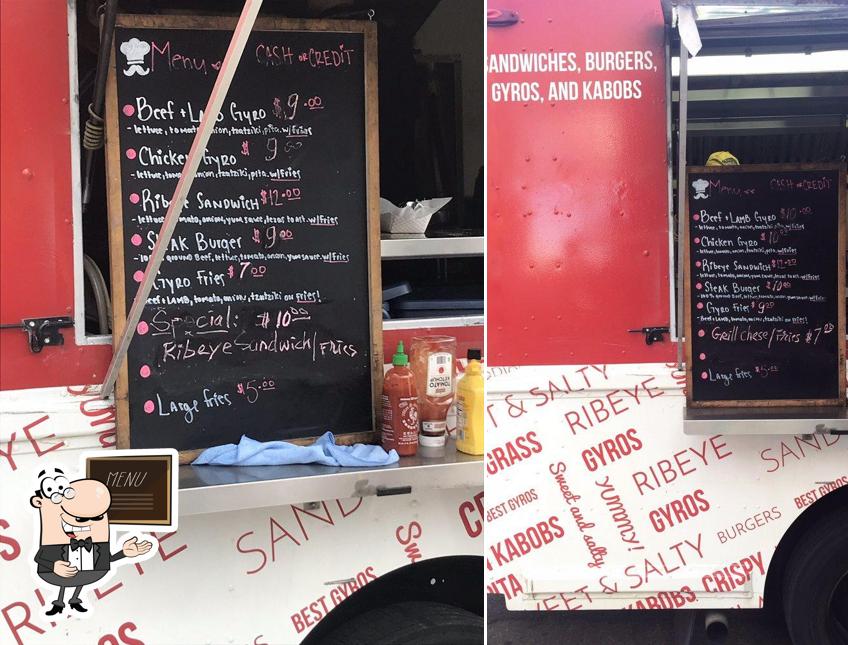 Menu
CASH OR CREDIT
Beef + Lamb Gyro $9.00
- lettuce, tomato, onion, tzatziki, pita. w/Fries
Chicken Gyro $9
- lettuce, tomato, onion, tzatziki, pita. w/Fries
Ribeye Sandwich $12.00
- lettuce, tomato, onion, yum sauce, texas toast. w/Fries
Steak Burger $9.00
- 100% Ground Beef, lettuce, tomato, onion, yum sauce. w/Fries
Gyro Fries $7.00
Beef + Lamb, tomato, onion, tzatziki on fries!
Special: $10.00
Ribeye Sandwich/Fries
Large fries $5.00
TOMATO
KETCHUP
MENU
RIBEYE
SAND
BEST GYROS
SANDWICHES, BURGERS,
GYROS, AND KABOBS
Menu
CASH OR CREDIT
Beef + Lamb Gyro $10.00
- lettuce, tomato, onion, tzatziki, pita. w/Fries
Chicken Gyro $10
- lettuce, tomato, onion, tzatziki, pita. w/Fries
Ribeye Sandwich $12.00
- lettuce, tomato, onion, yum sauce, texas toast. w/Fries
Steak Burger $10.00
- 100% Ground Beef, lettuce, tomato, onion, yum sauce. w/Fries
Gyro Fries $9.00
- Beef + Lamb, tomato, onion, tzatziki on fries!
Grill Chese/Fries $7.00
Large fries $5.00
T & SALTY
RIBEYE
GRASS
GYROS
RIBEYE
SAND
BEST GYROS
Sweet and salty
YUMMY!
GYROS
BURGERS
BEST GYROS
KABOBS
PITA
EET & SALTY
KABOBS
CRISPY